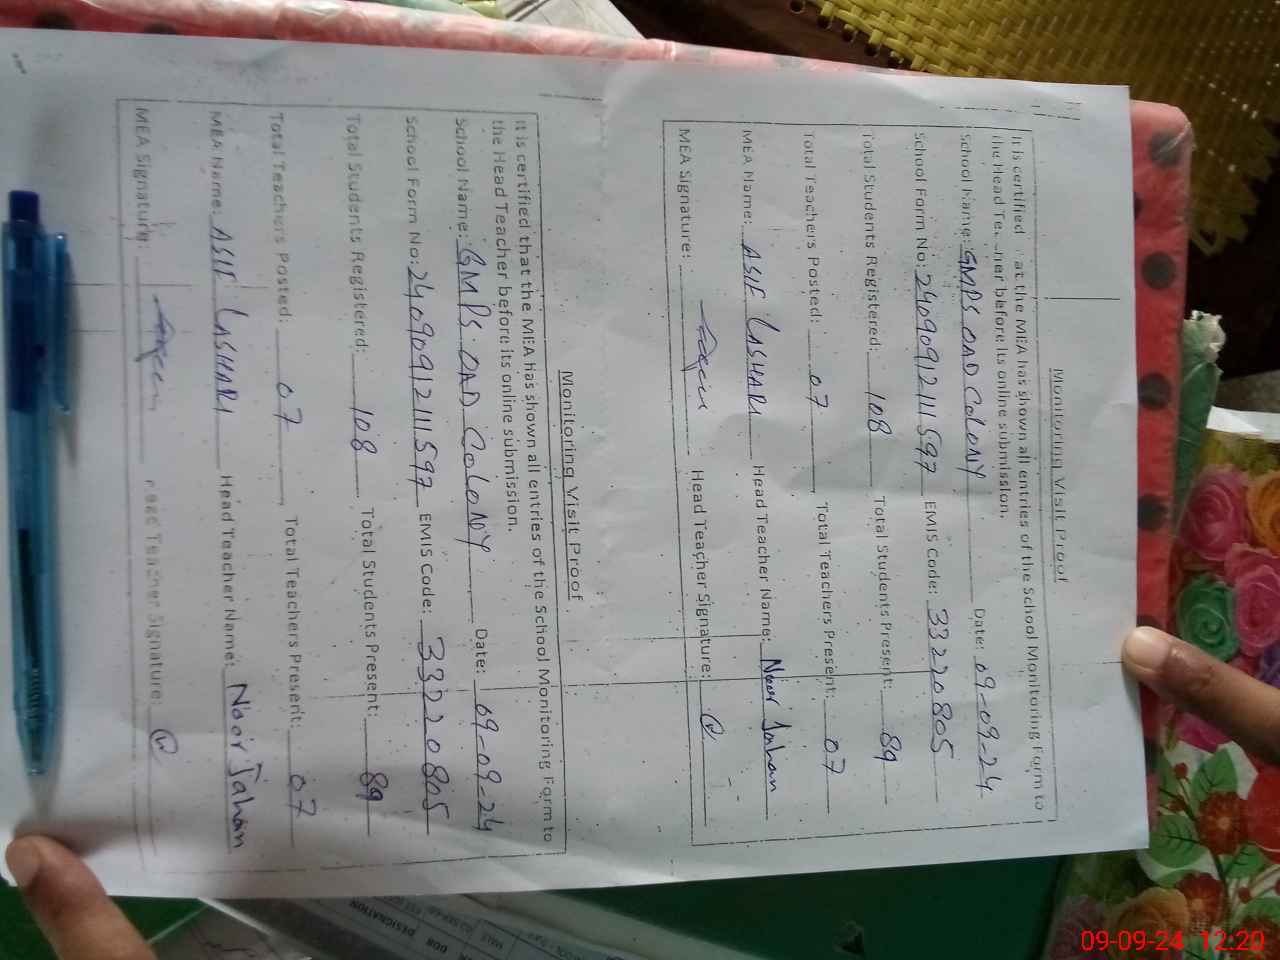 Monitoring Visit Proof
It is certified at the MEA has shown all entries of the School Monitoring Form to
the Head before its online submission.
School Name: GMPS OAD COLONY Date: 09-09-24
School Form No: 24090912111597 EMIS Code: 33220805
Total Students Registered: 108 Total Students Present: 89
Total Teachers Posted: 07 Total Teachers Present: 07
MEA Name: ASIF LASHARI Head Teacher Name: Noor Jahan
MEA Signature: Head Teacher Signature:
Monitoring Visit Proof
It is certified that the MEA has shown all entries of the School Monitoring Form to
the Head Teacher before its online submission.
School Name: GMPS OAD COLONY Date: 09-09-24
School Form No: 24090912111597 EMIS Code: 33220805
Total Students Registered: 108 Total Students Present: 89
Total Teachers Posted: 07 Total Teachers Present: 07
MEA Name: ASIF LASHARI Head Teacher Name: Noor Jahan
MEA Signature: Head Teacher Signature:
DDB DESIGNATION
09-09-24 12:20